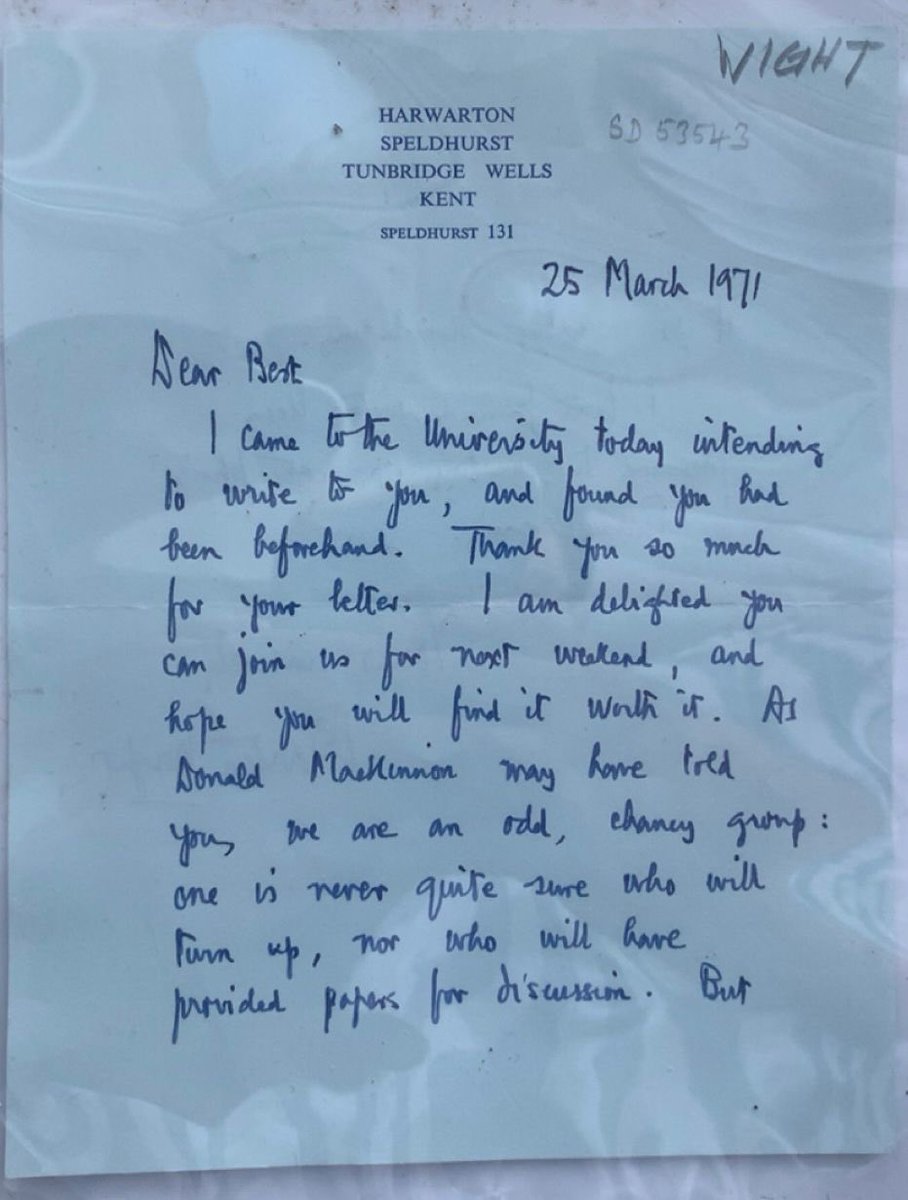 WIGHT
HARWARTON
SD 53543
SPELDHURST
TUNBRIDGE WELLS
KENT
SPELDHURST 131
25 March 1971
Dear Best
I came to the University today intending
to write to you, and found you had
been beforehand. Thank you so much
for your letter. I am delighted you
can join us for next weekend, and
hope you will find it worth it. As
Donald MacKinnon may have told
you, we are an odd, chancy group:
one is never quite sure who will
turn up, nor who will have
provided papers for discussion. But